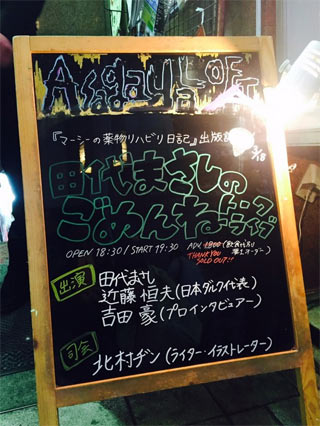 Asagaya Loft A
『マーシーの薬物リハビリ日記』出版
3/18
田代まさしの
ごめんねトークライブ
OPEN 18:30 / START 19:30
THANK YOU
SOLD OUT!!
出演
田代まさし
近藤恒夫(日本ダルク代表)
吉田豪(プロインタビュアー)
司会
北村ヂン(ライター・イラストレーター)